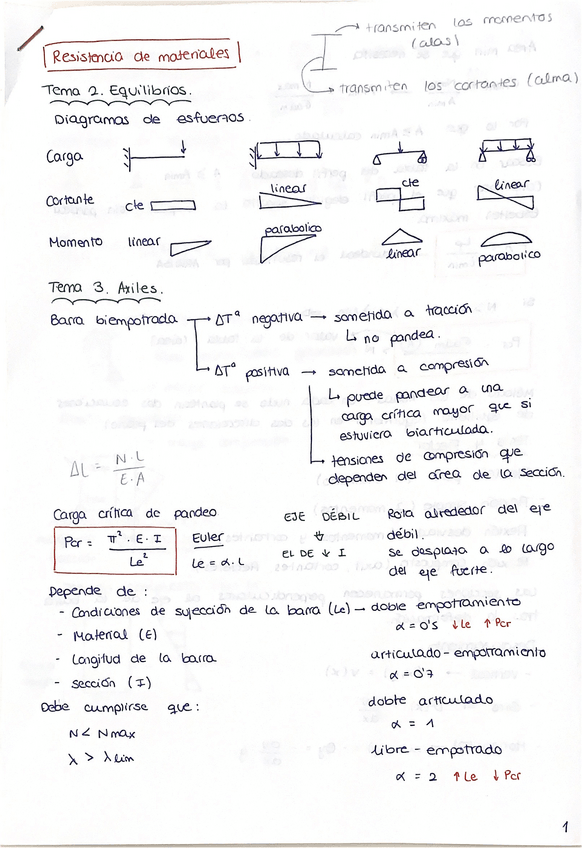 transmiten los momentos
(alas)
Resistencia de materiales
transmiten los cortantes (alma)
Tema 2. Equilibrios.
Diagramas de esfuerzos.
Carga
Cortante cte linear cte linear
Momento linear parabolico linear parabolico
Tema 3. Axiles.
Barra biempotrada → ΔTª negativa → sometida a tracción
↳ no pandea.
→ ΔTª positiva → sometida a compresión
↳ puede pandear a una
carga crítica mayor que si
estuviera biarticulada.
→ tensiones de compresión que
dependen del área de la sección.
ΔL = N·L / E·A
Carga crítica de pandeo
Pcr = π²·E·I / Le²
Euler
Le = α·L
EJE DÉBIL
⇓
EL DE ↓ I
Rota alrededor del eje
débil.
Se desplaza a lo largo
del eje fuerte.
Depende de :
- Condiciones de sujección de la barra (Le) → doble empotramiento
α = 0'5 ↓Le ↑Pcr
- Material (E)
- Longitud de la barra
- sección (I)
articulado - empotramiento
α = 0'7
doble articulado
α = 1
libre - empotrado
α = 2 ↑Le ↓Pcr
Debe cumplirse que :
N < Nmax
λ > λlim
1